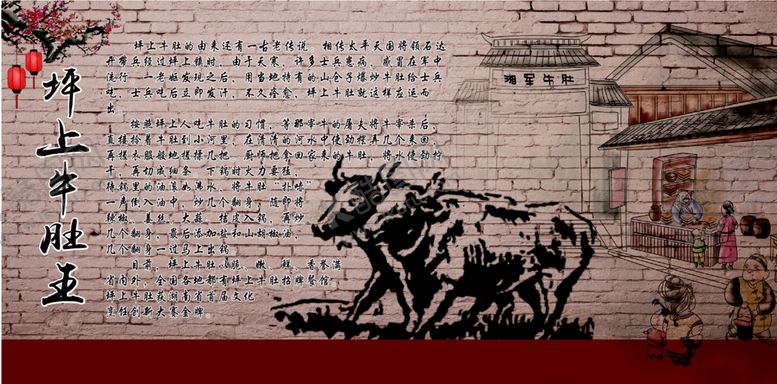 坪上牛肚王
坪上牛肚的由来还有一古老传说 相传太平天国将领石达
开带兵经过坪上镇时，由于天寒，许多士兵患病，感冒在军中
流行，一老妪发现之后，用当地特有的山仓子爆炒牛肚给士兵
吃，士兵吃后立即发汗，不久痊愈，坪上牛肚就这样应运而
出。
按照坪上人吃牛肚的习惯，等那宰牛的屠夫将牛宰杀后，
直接拾着牛肚到小河里，在清清的河水中使劲摆弄几个来回，
再搓衣服般地搓揉几把 厨师把拿回家来的牛肚，将水使劲拧
干，再切成细条 下锅时火力要猛，
待锅里的油滚如沸水，将牛肚“扑哧”
一声倒入油中，炒几个翻身，随即将
辣椒、姜丝、大蒜、桔皮入锅，再炒
几个翻身，最后添加盐和山胡椒油，
几个翻身一过马上出锅
目前，坪上牛肚以脆、嫩、鲜、香誉满
省内外，全国各地都有坪上牛肚招牌餐馆
坪上牛肚获湖南省首届文化
烹饪创新大赛金牌。
湘军牛肚